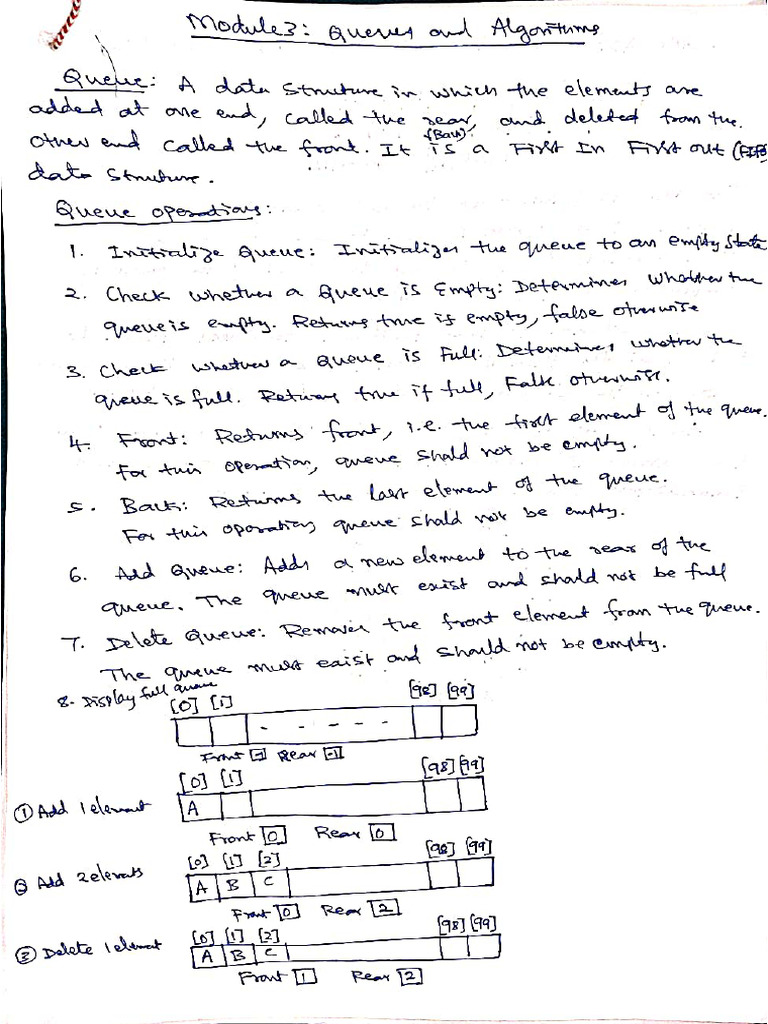 Module3: Queues and Algorithms
Queue: A data structure in which the elements are
added at one end, called the rear, and deleted from the
(Back)
other end called the front. It is a First In First out (FIFO)
data structure.
Queue operations:
1. Initialize Queue: Initializes the queue to an empty state
2. Check whether a Queue is Empty: Determines whether the
queue is empty. Returns true if empty, false otherwise
3. Check whether a Queue is Full: Determines whether the
queue is full. Returns true if full, False otherwise.
4. Front: Returns front, i.e. the first element of the queue.
For this operation, queue shald not be empty.
5. Back: Returns the last element of the queue.
For this operation, queue shald not be empty.
6. Add Queue: Adds a new element to the rear of the
queue. The queue must exist and shald not be full
7. Delete Queue: Removes the front element from the queue.
The queue must exist and should not be empty.
8. Display full queue
[0] [1] [98] [99]
- - - - - -
Front -1 Rear -1
[0] [1] [98] [99]
① Add 1 element A
Front 0 Rear 0
[0] [1] [2] [98] [99]
② Add 2 elements A B C
Front 0 Rear 2
[0] [1] [2] [98] [99]
③ Delete 1 element A B C
Front 1 Rear 2